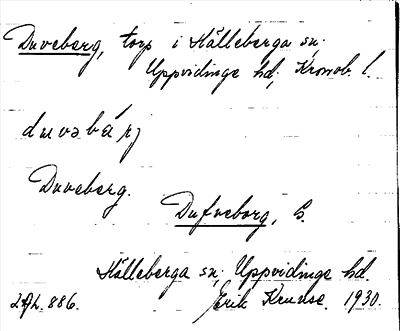 Duveberg, torp i Hälleberga sn;
Uppvidinge hd, Kronob. l.
duvəbárj
Duveberg.
Dufveborg, S.
Hälleberga sn; Uppvidinge hd.
886. Erik Kruuse. 1930.